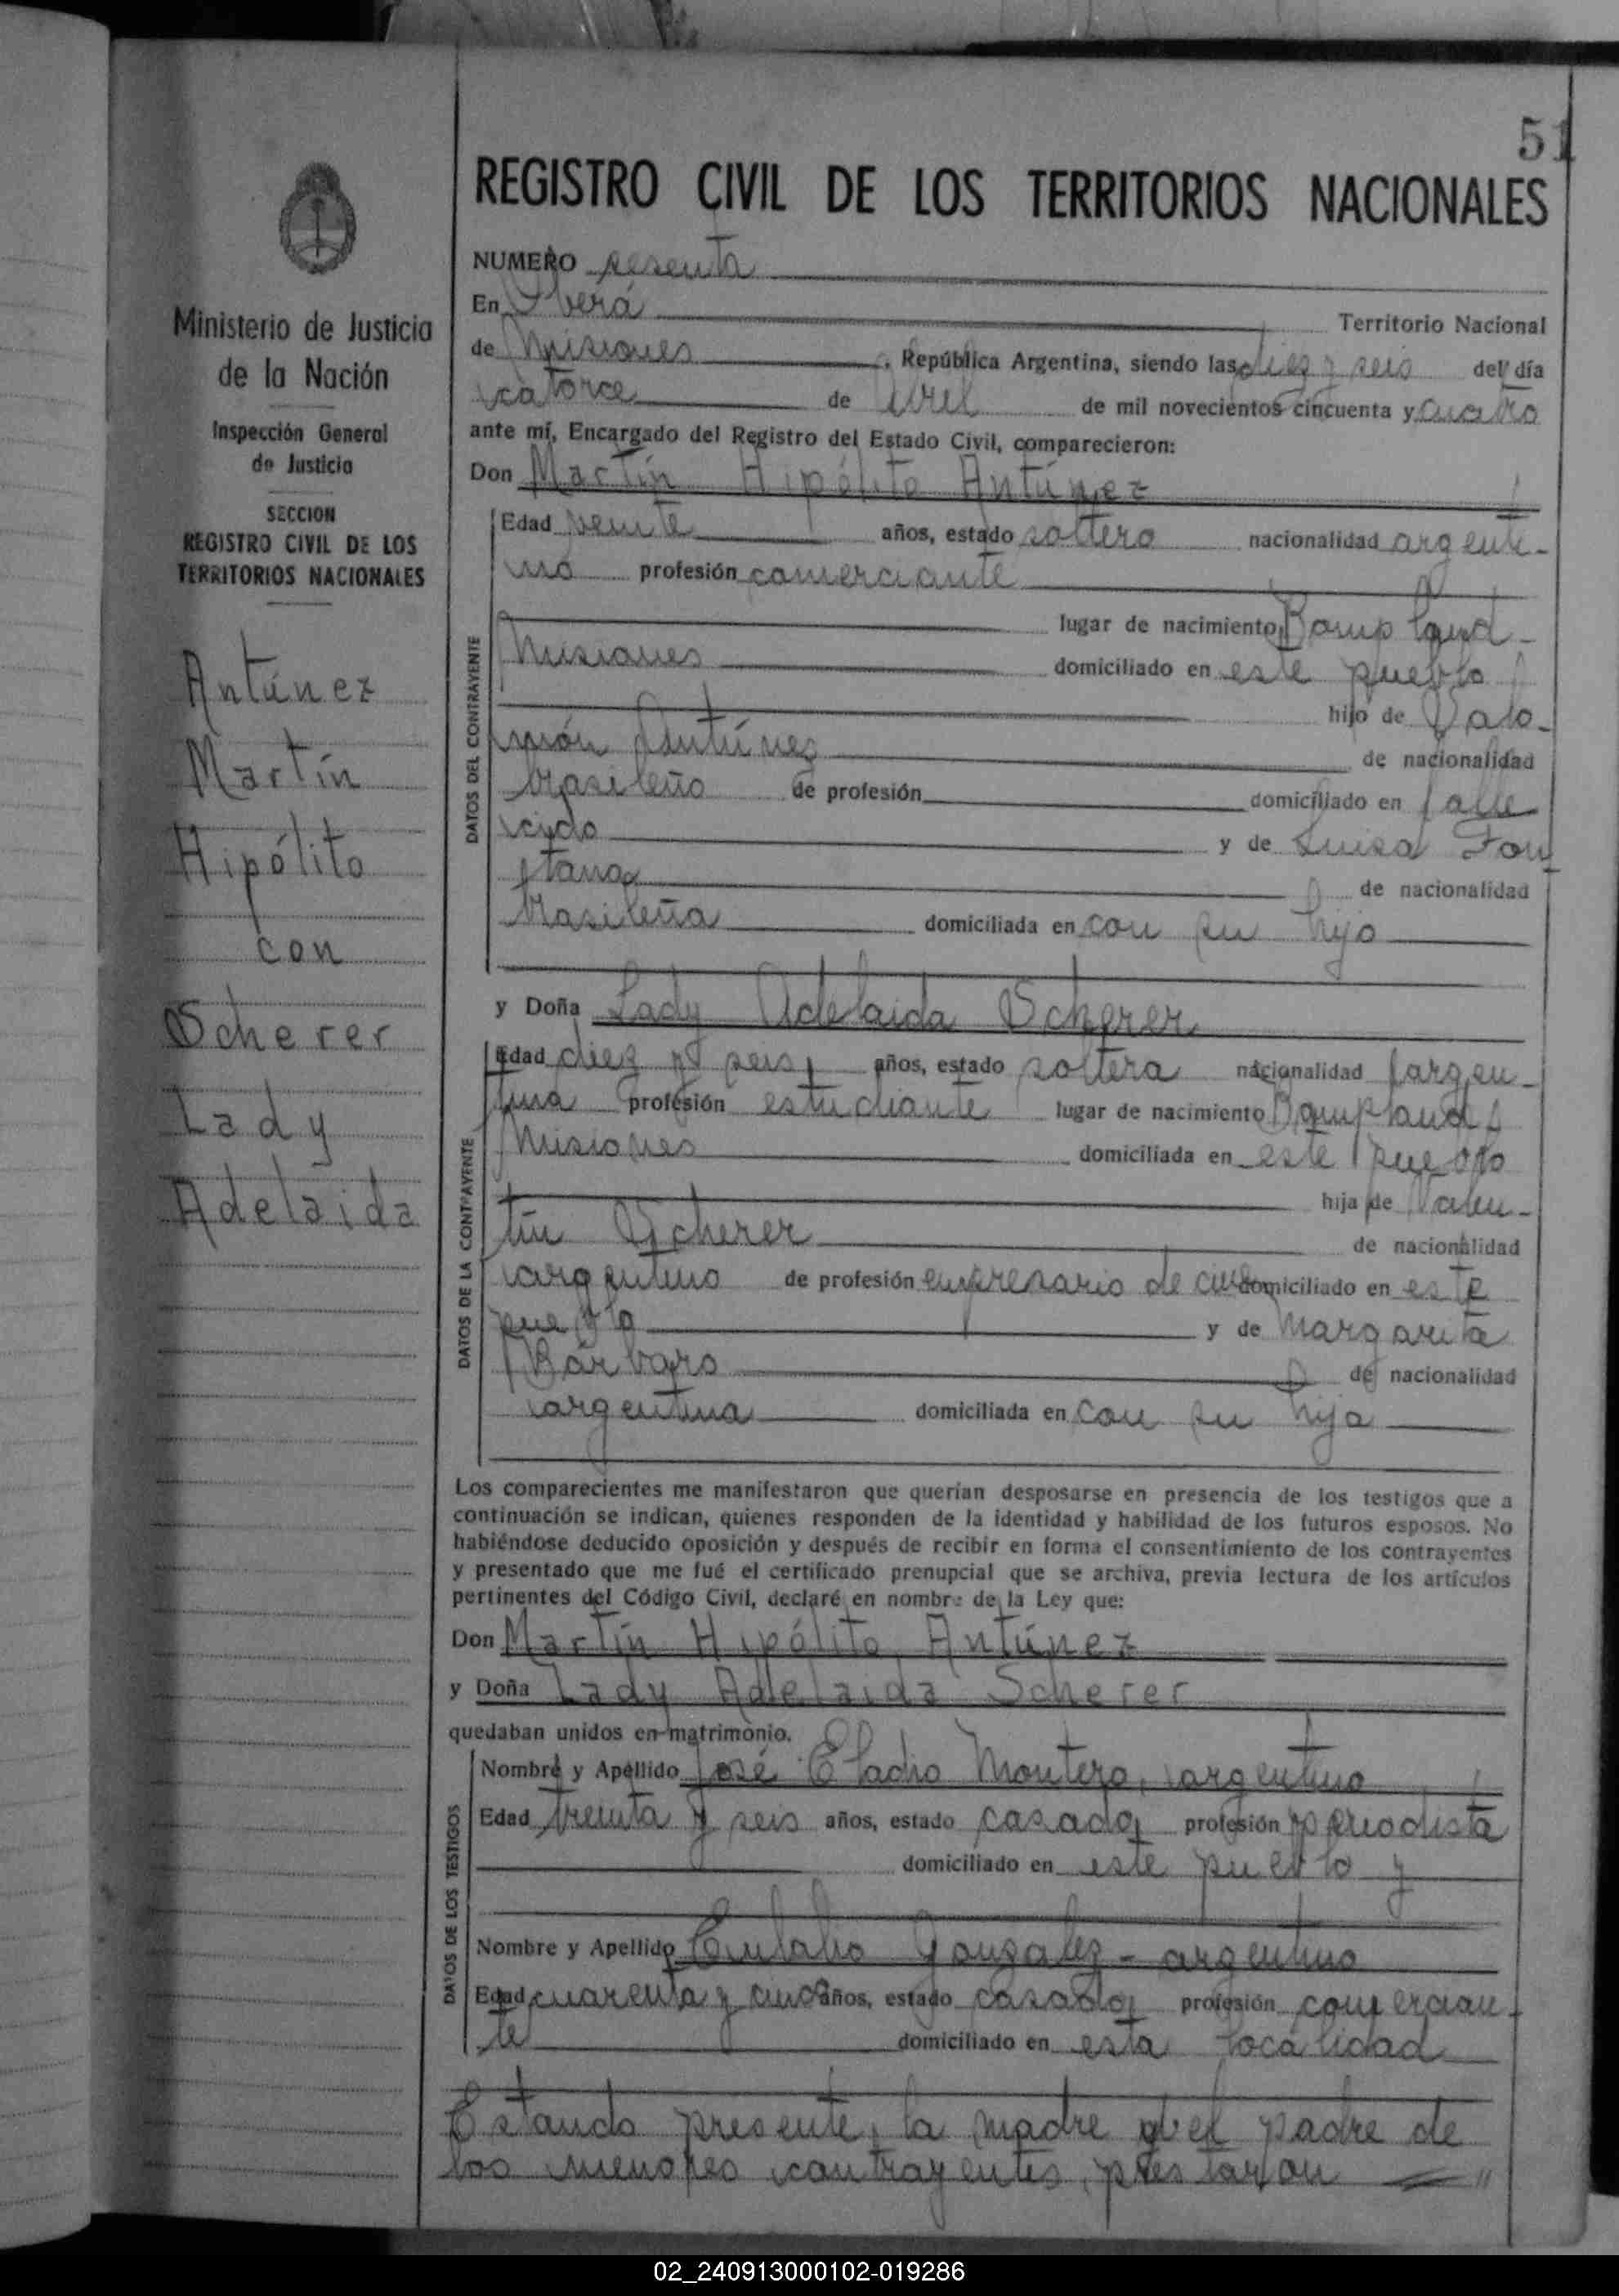 51
REGISTRO CIVIL DE LOS TERRITORIOS NACIONALES
Ministerio de Justicia
de la Nación
Inspección General
de Justicia
SECCION
REGISTRO CIVIL DE LOS
TERRITORIOS NACIONALES
Antúnez
Martín
Hipólito
con
Scherer
Lady
Adelaida
NUMERO sesenta
En Oberá Territorio Nacional
de Misiones, República Argentina, siendo las diez y seis del día
catorce de abril de mil novecientos cincuenta y cuatro
ante mí, Encargado del Registro del Estado Civil, comparecieron:
Don Martín Hipólito Antúnez
DATOS DEL CONTRAYENTE
Edad veinte años, estado soltero nacionalidad argenti-
no profesión comerciante
lugar de nacimiento Bompland-
Misiones domiciliado en este pueblo
hijo de Palo-
món Antúnez de nacionalidad
brasileño de profesión domiciliado en falle
cido y de Luisa Fon
tana de nacionalidad
brasileña domiciliada en con su hijo
y Doña Lady Adelaida Scherer
DATOS DE LA CONTRAYENTE
Edad diez y seis años, estado soltera nacionalidad argen-
tina profesión estudiante lugar de nacimiento Bompland
Misiones domiciliada en este pueblo
hija de Valen-
tín Scherer de nacionalidad
argentino de profesión empresario de cine domiciliado en este
pueblo y de Margarita
Bárbaro de nacionalidad
argentina domiciliada en con su hija
Los comparecientes me manifestaron que querían desposarse en presencia de los testigos que a
continuación se indican, quienes responden de la identidad y habilidad de los futuros esposos. No
habiéndose deducido oposición y después de recibir en forma el consentimiento de los contrayentes
y presentado que me fué el certificado prenupcial que se archiva, previa lectura de los artículos
pertinentes del Código Civil, declaré en nombre de la Ley que:
Don Martín Hipólito Antúnez
y Doña Lady Adelaida Scherer
quedaban unidos en matrimonio.
DATOS DE LOS TESTIGOS
Nombre y Apellido José Eladio Montero, argentino
Edad treinta y seis años, estado casado, profesión periodista
domiciliado en este pueblo y
Nombre y Apellido Eulalio Gonzalez - argentino
Edad cuarenta y cinco años, estado casado, profesión comercian-
te domiciliado en esta localidad
Estando presente, la madre y el padre de
los menores contrayentes, prestaron "
02_240913000102-019286